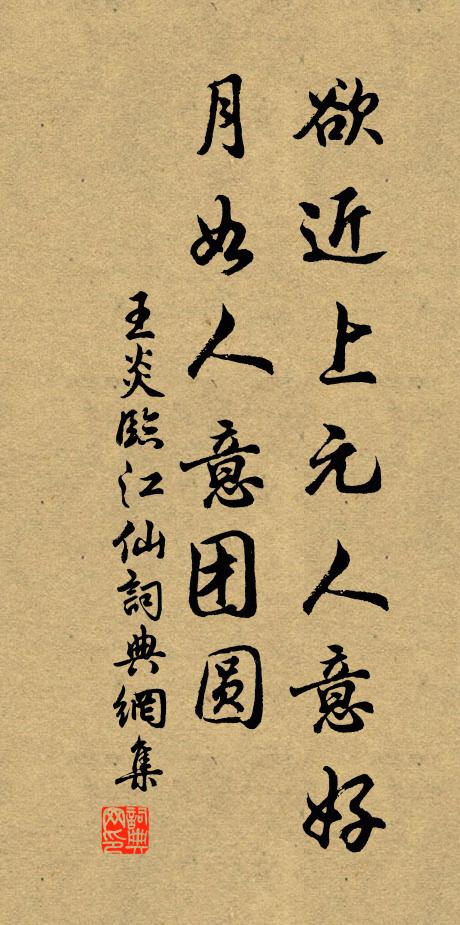 欲近上元人意好
月如人意团圆
王炎臨江仙詞典網集
詞典网印